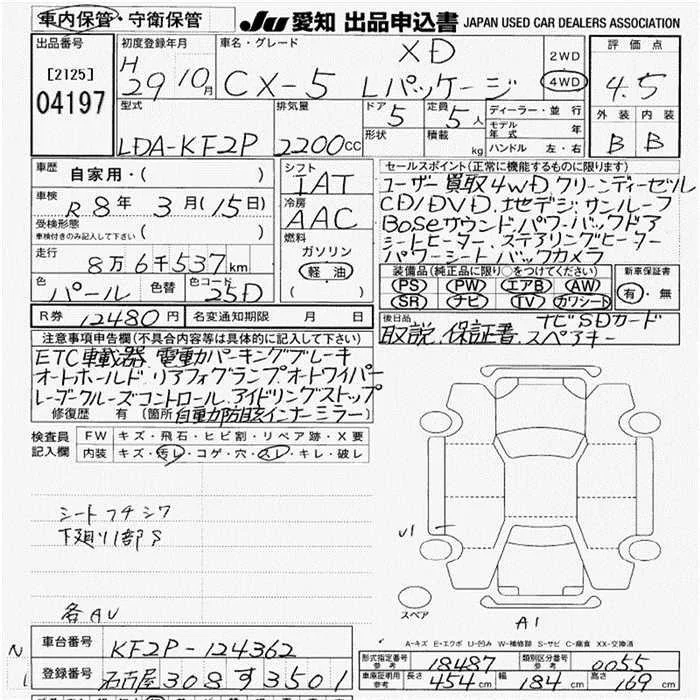 車内保管・守衛保管
JU 愛知 出品申込書 JAPAN USED CAR DEALERS ASSOCIATION
出品番号
[2125]
04197
初度登録年月
H 29 10月
車名・グレード
XD
CX-5 Lパッケージ
2WD
4WD
評価点
4.5
外装 内装
B B
型式
LDA-KF2P
排気量
2200CC
ドア 5
形状
定員 5人
積載 kg
ディーラー・並行
モデル年式 年
ハンドル 左・右
車歴 自家用・( )
車検 R 8年 3月(15日)
受検形態
車検付きのみ記入して下さい ( )
走行 8万6千537km
色 パール 色替 色コード 25D
シフト
IAT
冷房
AAC
燃料
ガソリン
軽油
( )
セールスポイント(正常に機能するものに限ります)
ユーザー買取4WD.クリーンディーゼル
CD/DVD.地デジ.サンルーフ
Boseサウンド.パワーバックドア
シートヒーター.ステアリングヒーター
パワーシート バックカメラ
装備品(純正品に限り○をつけてください)
PS PW エアB AW
SR ナビ TV カワシート
新車保証書
有・無
R券 12480円 名変通知期限 月 日
後日品
ナビSDカード
取説.保証書.スペアキー
注意事項申告欄(不具合内容等は具体的に記入して下さい)
ETC車載器 電動パーキングブレーキ
オートホールド.リアフォグランプ.オートワイパー
レーダークルーズコントロール.アイドリングストップ
修復歴 有(箇所 自動防眩インナーミラー)
検査員記入欄
FW キズ・飛石・ヒビ割・リペア跡・X要
内装 キズ・汚レ・コゲ・穴・スレ・キレ・破レ
シートフチシワ
下廻り1部S
各AU
U1
スペア
A1
A-キズ E-エクボ U-凹み W-補修跡 S-サビ C-腐食 XX-交換済
N
車台番号 KF2P-124362
登録番号 名古屋308す3501
形式指定番号 参考 18487 類別区分番号 参考 0055
車庫証明用 参考 長さ 454cm 幅 184cm 高さ 169cm